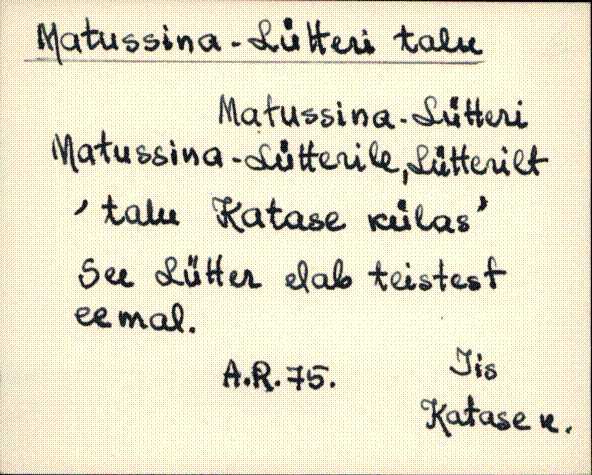 Matussina-Lütteri talu
Matussina-Lütteri
Matussina-Lütterile, Lütterilt
'talu Katase külas'
See Lütter elab teistest
eemal.
A.R. 75.
Iis
Katase k.